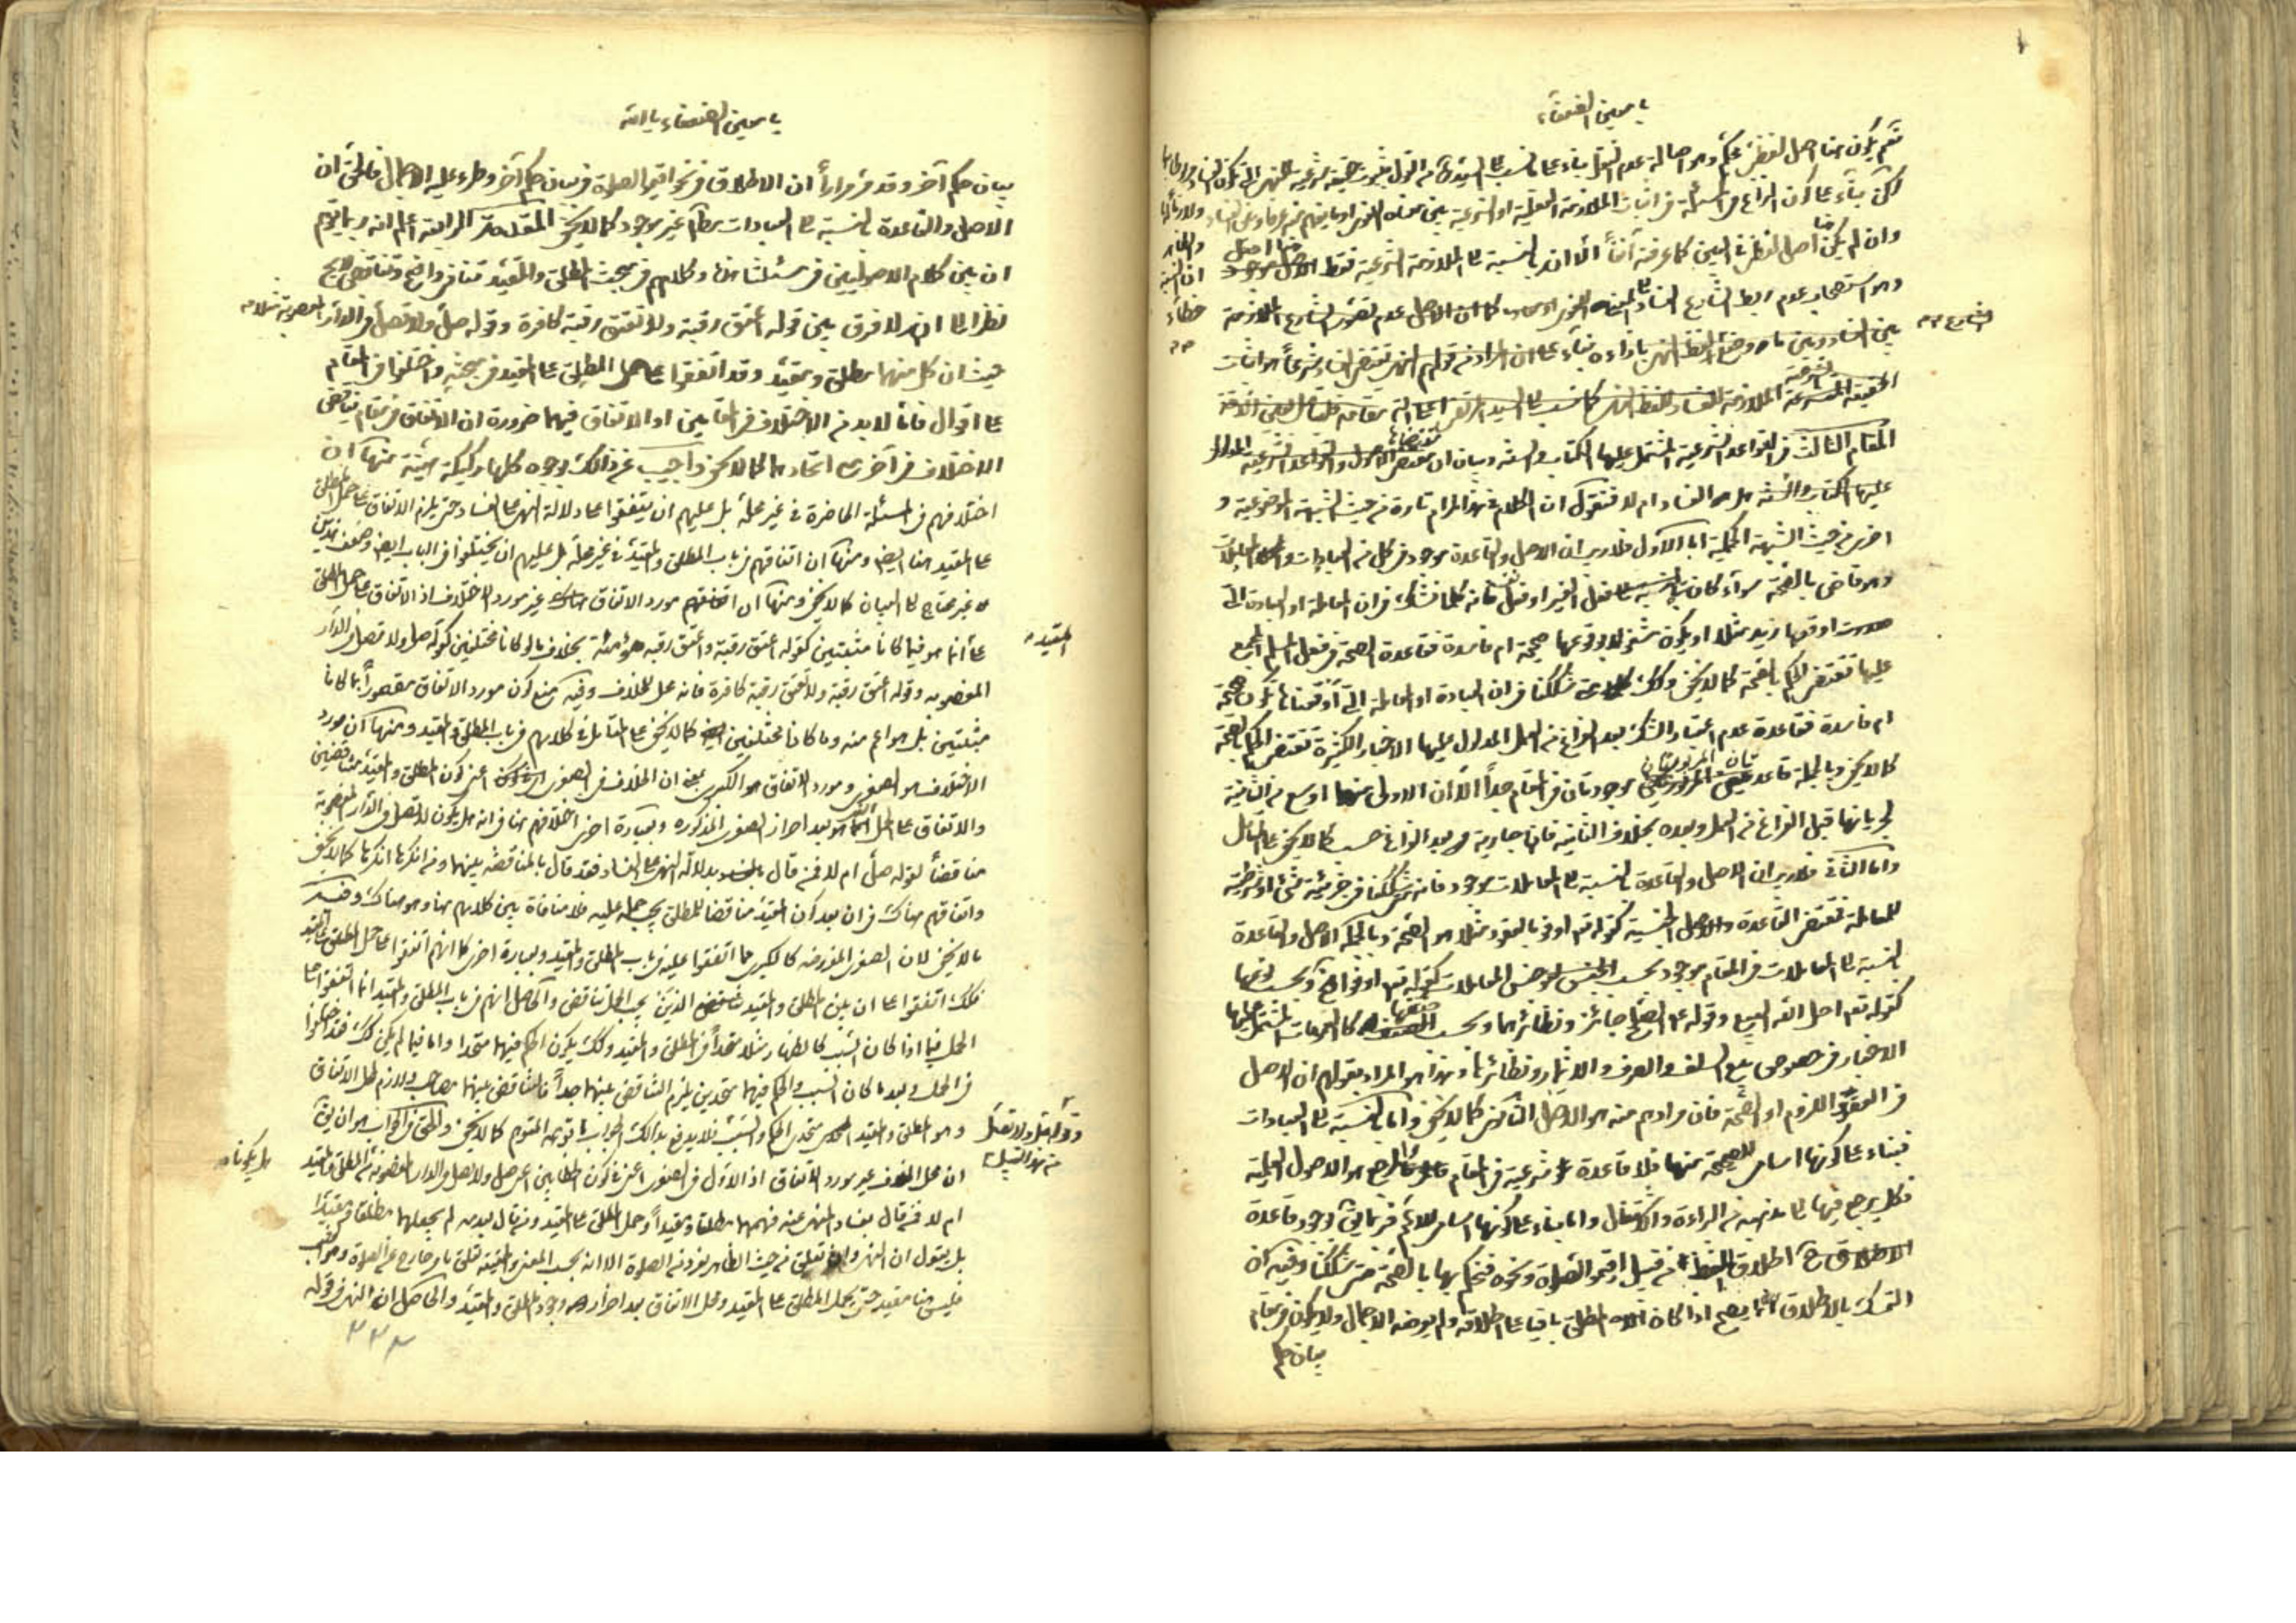 يا معين الضعفاء
نعم يكون هنا اصل لفظي محكم وهو اصالة عدم النقل بناء على ما نسب الى السيد من القول بثبوت حقيقة شرعية للنهي
لكن بناء على كون النزاع في المسئلة في اثبات الملازمة العقلية او الشرعية بين معناه اللغوي
وان لم يكن هنا اصل لفظي في البين كما عرفته آنفاً الا ان بالنسبة الى الملازمة الشرعية فقط
وهو استصحاب عدم ربط الشارع الفساد كما ان الاصل عدم تصور الشارع الملازمة
بين الفساد وبين ما وضع لفظ النهي بازاءه بناء على ان المراد من قولهم النهي يقتضي الفساد شرعاً هو اثبات
الحقيقة الشرعية كما نسب الى السيد المرتضى
المقام الثالث في القواعد الشرعية المشتمل عليها الكتاب والسنة وبيان ان مقتضى الاصول والقواعد الشرعية المدلول
عليها الكتاب والسنة هل هو الفساد ام لا فنقول ان الكلام في هذا المرام تارة من حيث الشبهة الموضوعية و
اخرى من حيث الشبهة الحكمية اما الاول فلا ريب ان الاصل والقاعدة موجود في كل من العبادات والمعاملات
وهو قاضي بالصحة سواء كان بالنسبة الى فعل الغير او فعل نفسه فانه كلما نشك في ان المعاملة او العبادة التي
اوقعها زيد مثلا او يكون مشغولا بوقوعها صحيحة ام فاسدة فقاعدة الصحة في فعل المسلم المجمع
عليها تقتضي الحكم بالصحة كما لا يخفى وكذلك شككنا في ان العبادة او المعاملة التي اوقعناها تكون صحيحة
ام فاسدة فقاعدة عدم اعتبار الشك بعد الفراغ من العمل المدلول عليها الاخبار الكثيرة تقتضي الحكم بالصحة
كما لا يخفى وبالجملة قاعدتان المزبورتان موجودتان في المقام جداً الا ان الاولى منهما اوسع من الثانية
لجريانها قبل الفراغ من العمل وبعده بخلاف الثانية فانها جارية بعد الفراغ حسب كما لا يخفى على المتأمل
واما الثاني فلا ريب ان الاصل والقاعدة بالنسبة الى المعاملات موجود فانه متى شككنا في جزئية شيء او شرطيته
للمعاملة فمقتضى القاعدة والاصل الجنسية كقوله تعالى اوفوا بالعقود مثلا هو الصحة وبالجملة الاصل والقاعدة
بالنسبة الى المعاملات في المقام موجود بحسب الجنس كقوله تعالى اوفوا الخ وبحسب نوعها
كقوله تعم احل الله البيع وقوله الصلح جائز ونظائرهما وبحسب صنفها كالعمومات المشتمل عليها
الاخبار في خصوص بيع السلف والصرف والاثمار ونظائرها وهذا هو المراد بقولهم ان الاصل
في العقود اللزوم او الصحة فان مرادهم منه هو الاصل الثانوي كما لا يخفى واما بالنسبة الى العبادات
فبناء على كونها اسامي للصحيحة منها فلا قاعدة شرعية في المقام فالمرجع هو الاصول العملية
فكل يرجع فيها الى مذهبه من البراءة والاشتغال واما بناء على كونها اسامي للاعم فربما يق بوجود قاعدة
الاطلاق اطلاق اللفظ من قبيل اقيموا الصلوة ونحوه فنحكم بها بالصحة متى شككنا وفيه ان
التمسك بالاطلاق انما يصح اذا كان المطلق باقيا على اطلاقه ولم يعرضه الاجمال ولا يكون في مقام
بيان حكم
الشارع
يا معين الضعفاء يا الله
بيان حكم آخر وقد مر مراراً ان الاطلاق في نحو اقيموا الصلوة في بيان حكم آخر وطرء عليه الاجمال فالحق ان
الاصل والقاعدة بالنسبة الى العبادات غير موجود كما لا يخفى المقدمة الرابعة اعلم انه ربما يتوهم
ان بين كلام الاصوليين في مسئلتنا هذه وكلامهم في مبحث المطلق والمقيد تنافي واضح وتناقض لايح
نظرا الى ان لا فرق بين قوله اعتق رقبة ولا تعتق رقبة كافرة وقوله صل ولا تصل في الدار المغصوبة مثلا
حيث ان كل منهما مطلق ومقيد وقد اتفقوا على حمل المطلق على المقيد في مبحثه واختلفوا في المقام
على اقوال فاما لا بد من الاختلاف في المقامين او الاتفاق فيهما ضرورة ان الاتفاق في مقام يناقض
الاختلاف في آخر مع اتحادهما كما لا يخفى واجيب عن ذلك بوجوه كلها ركيكة هينة منها ان
اختلافهم في المسئلة الحاضرة في غير محله بل عليهم ان يتفقوا على دلالة النهي على الفساد حتى يلزم الاتفاق على حمل المطلق
على المقيد هنا ايضا ومنها ان اتفاقهم في باب المطلق والمقيد في غير محله بل عليهم ان يختلفوا في الباب ايضا وضعف هذين
غير محتاج الى البيان كما لا يخفى ومنها ان اتفاقهم مورد الاتفاق هناك غير مورد الاختلاف اذ الاتفاق على حمل المطلق
على انما هو فيما كانا مثبتين كقوله اعتق رقبة واعتق رقبة مؤمنة بخلاف ما لو كانا مختلفين كقوله صل ولا تصل في الدار
المقيد
المغصوبه وقوله اعتق رقبة ولا تعتق رقبة كافرة فانه محل للخلاف وفيه منع كون مورد الاتفاق مقصوراً بما كانا
مثبتين بل هو اعم منه وما كانا مختلفين كما لا يخفى على المتأمل في كلامهم في باب المطلق والمقيد ومنها ان مورد
الاختلاف هو الصغرى ومورد الاتفاق هو الكبرى بمعنى ان الخلاف في الصغرى اعني كون المطلق والمقيد متناقضين
والاتفاق على الحمل انما هو بعد احراز الصغرى المذكورة وبعبارة اخرى اختلافهم هنا في انه هل يكون لا تصل في الدار المغصوبة
مناقضاً لقوله صل ام لا فمن قال بدلالة النهي على الفساد فقد قال بالمناقضة بينهما ومن انكرها انكرها كما لا يخفى
واتفاقهم هناك في ان بعد كون المقيد مناقضا للمطلق يجب حمله عليه فلا منافاة بين كلامهم هنا وهو هناك وفيه
ما لا يخفى لان الصغرى المزبوره كالكبرى مما اتفقوا عليه في باب المطلق والمقيد وبعبارة اخرى كما انهم اتفقوا على حمل المطلق على المقيد
فكذلك اتفقوا على ان بين المطلق والمقيد تناقض والحاصل انهم في باب المطلق والمقيد انما اتفقوا على
الحمل فيما اذا كان السبب كالظهار مثلا متحداً في المطلق والمقيد وكذلك يكون الحكم فيهما متحدا واما فيما لم يكن كذلك فقد اختلفوا
في الحمل وبعد ما كان السبب والحكم فيهما متحدين يلزم التناقض بينهما جداً فالتناقض بينهما مصاحب ولازم لمحل الاتفاق
وهو المطلق والمقيد متحدي الحكم والسبب فلا يدفع بذلك الجواب ما توهمه المتوهم كما لا يخفى والحق في الجواب هو ان يق
وقوله صل ولا تصل
من هذا القبيل
ان محل الخلاف غير مورد الاتفاق اذ الاول في الصغرى اعني في كون الخطابين اعني صل ولا تصل في الدار المغصوبة من المطلق والمقيد
هل يكونا
ام لا فمن قال بفساد المنهي عنه فهمهما مطلقا ومقيداً وحمل المطلق على المقيد ومن قال بعدمه لم يجعلهما مطلقا ومقيدا
بل يقول ان النهي وان تعلق من حيث الظاهر بفرد من الصلوة الا انه بحسب المعنى والحقيقة تعلق بامر خارج عن الصلوة وهو الغصب
فليس هنا مقيد حتى يحمل المطلق على المقيد ومحل الاتفاق بعد احراز وجود المطلق والمقيد والحاصل ان النهي في قوله